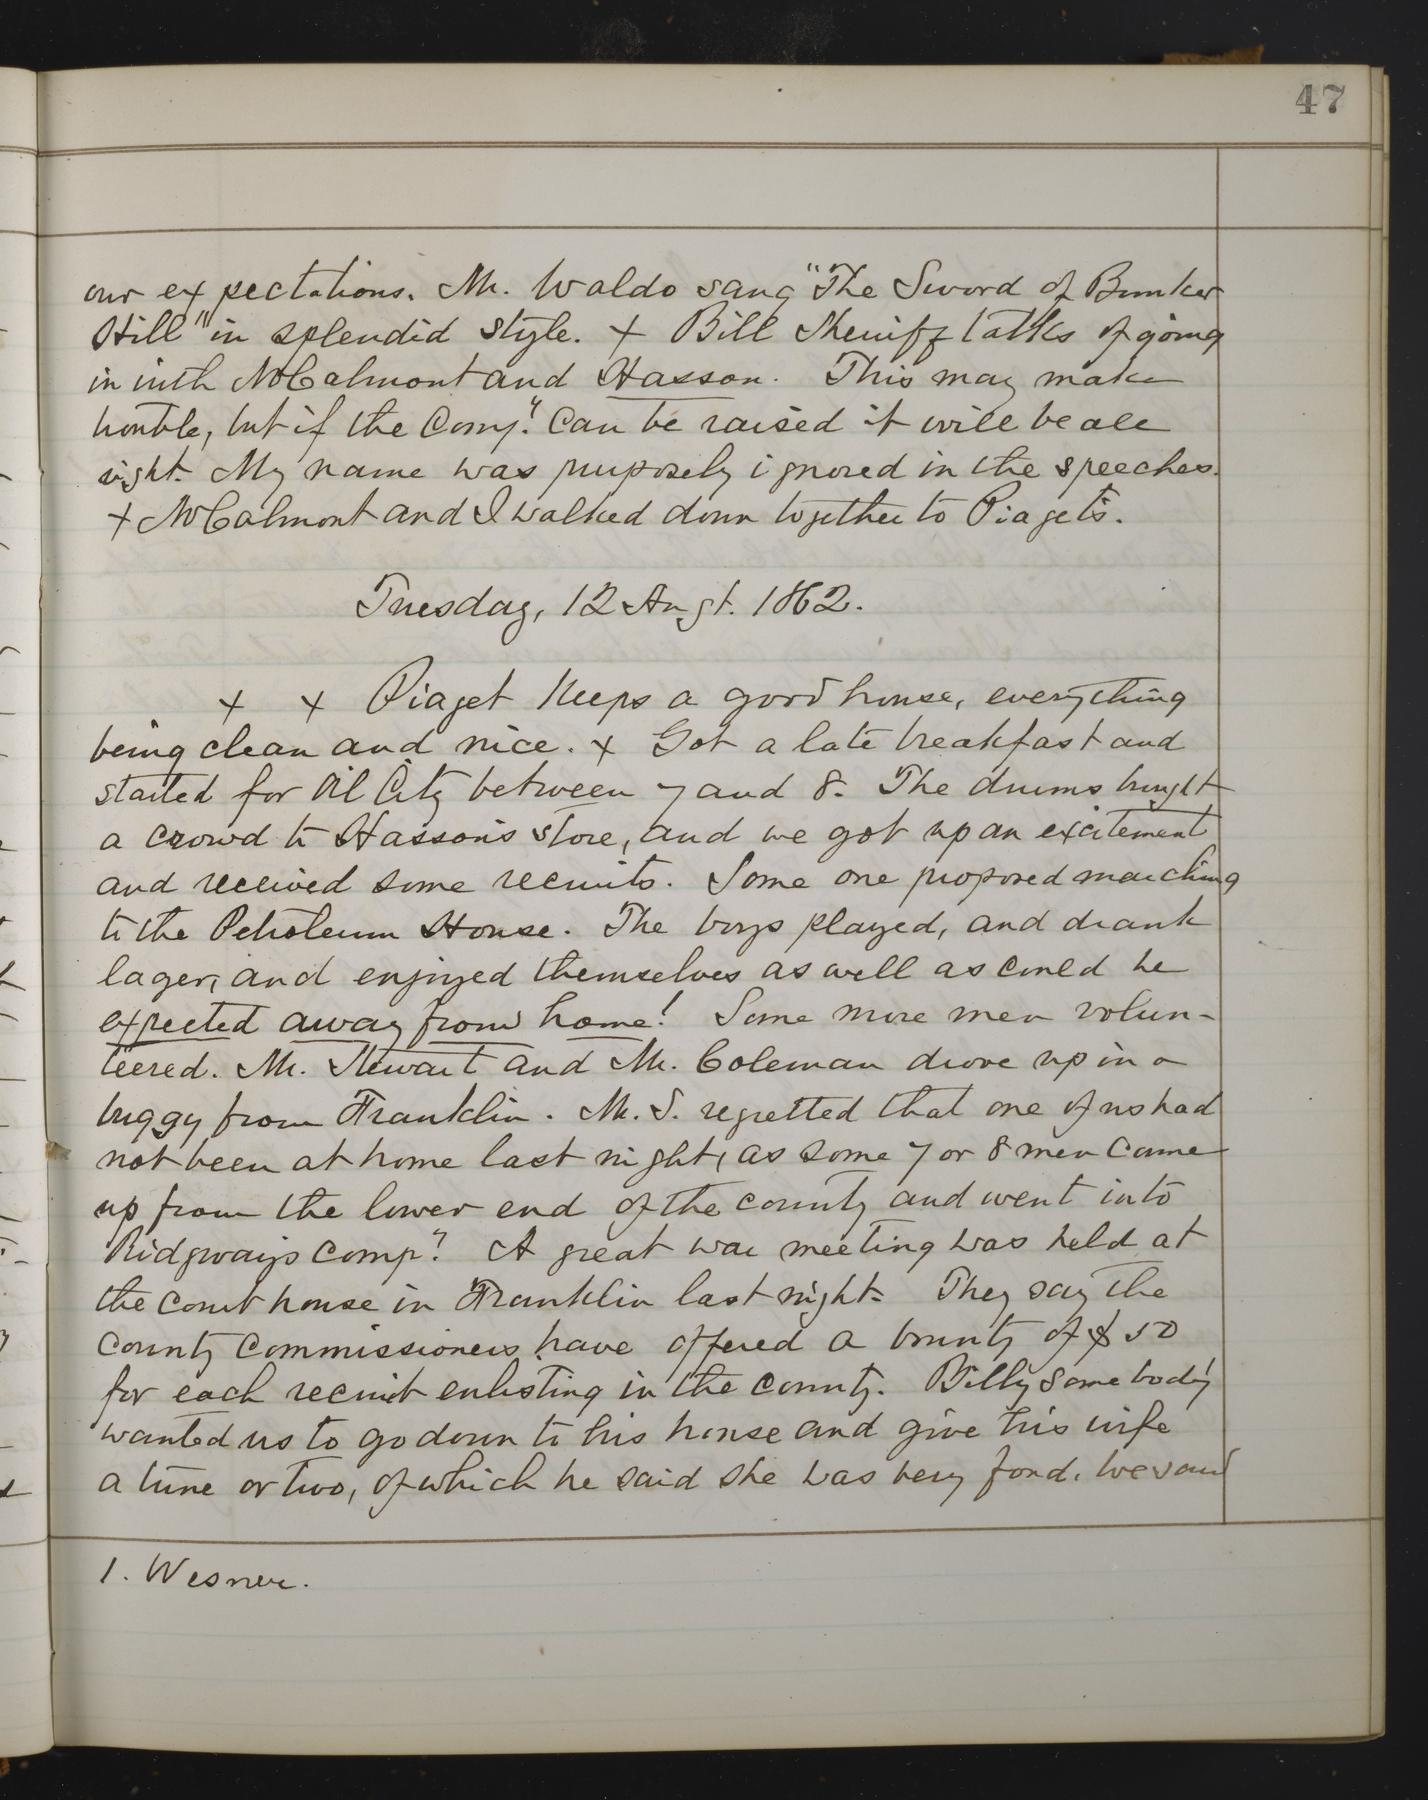 47
our expectations. Mr. Waldo sang "The Sword of Bunker
Hill" in splendid style. + Bill Sheriff talks of going
in with McCalmont and Hasson. This may make
trouble, but if the Comp.y can be raised it will be all
right. My name was purposely ignored in the speeches.
+ McCalmont and I walked down together to Piagets.
Tuesday, 12 Augt. 1862.
+ + Piaget keeps a good house, everything
being clean and nice. + Got a late breakfast and
started for Oil City between 7 and 8. The drums brought
a crowd to Hasson's store, and we got up an excitement
and received some recruits. Some one proposed marching
to the Petroleum House. The boys played, and drank
lager, and enjoyed themselves as well as could be
expected away from home! Some more men volun-
teered. Mr. Stewart and Mr. Coleman drove up in a
buggy from Franklin. Mr. S. regretted that one of us had
not been at home last night, as some 7 or 8 men came
up from the lower end of the county and went into
Ridgway's Comp.y A great war meeting was held at
the court house in Franklin last night. They say the
County Commissioners have offered a bounty of $50
for each recruit enlisting in the county. Billy Somebody¹
wanted us to go down to his house and give his wife
a tune or two, of which he said she was very fond. We said
1. Wesner.